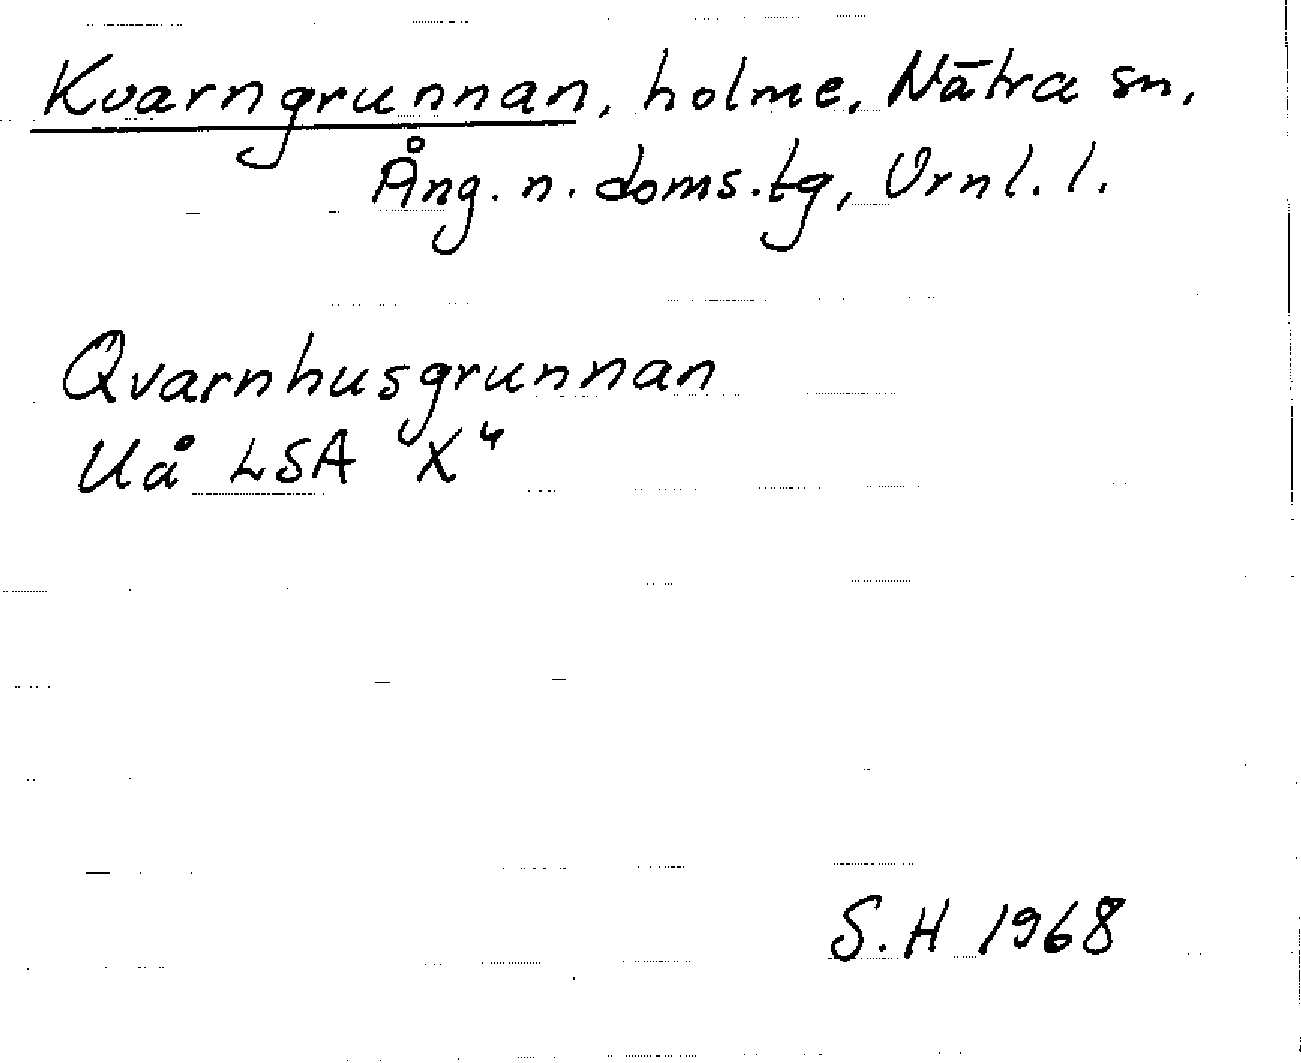 Kvarngrunnan, holme, Nätra sn,
Ång. n. doms.tg, Vrnl. l.
Qvarnhusgrunnan
Uå LSA X4
S.H 1968